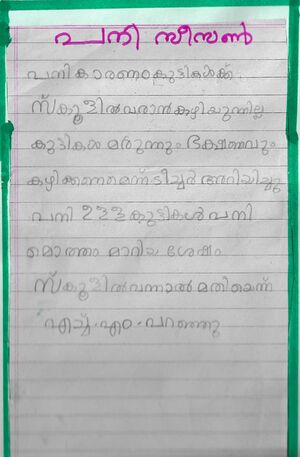 പനി സീസൺ
പനികാരണം കുട്ടികൾക്ക്
സ്കൂളിൽ വരാൻ കഴിയുന്നില്ല
കുട്ടികൾ മരുന്നും ഭക്ഷണവും
കഴിക്കണമെന്ന് ടീച്ചർ അറിയിച്ചു
പനി ഉള്ള കുട്ടികൾ പനി
മൊത്തം മാറിയ ശേഷം
സ്കൂളിൽ വന്നാൽ മതിയെന്ന്
എച്ച്.എം.പറഞ്ഞു